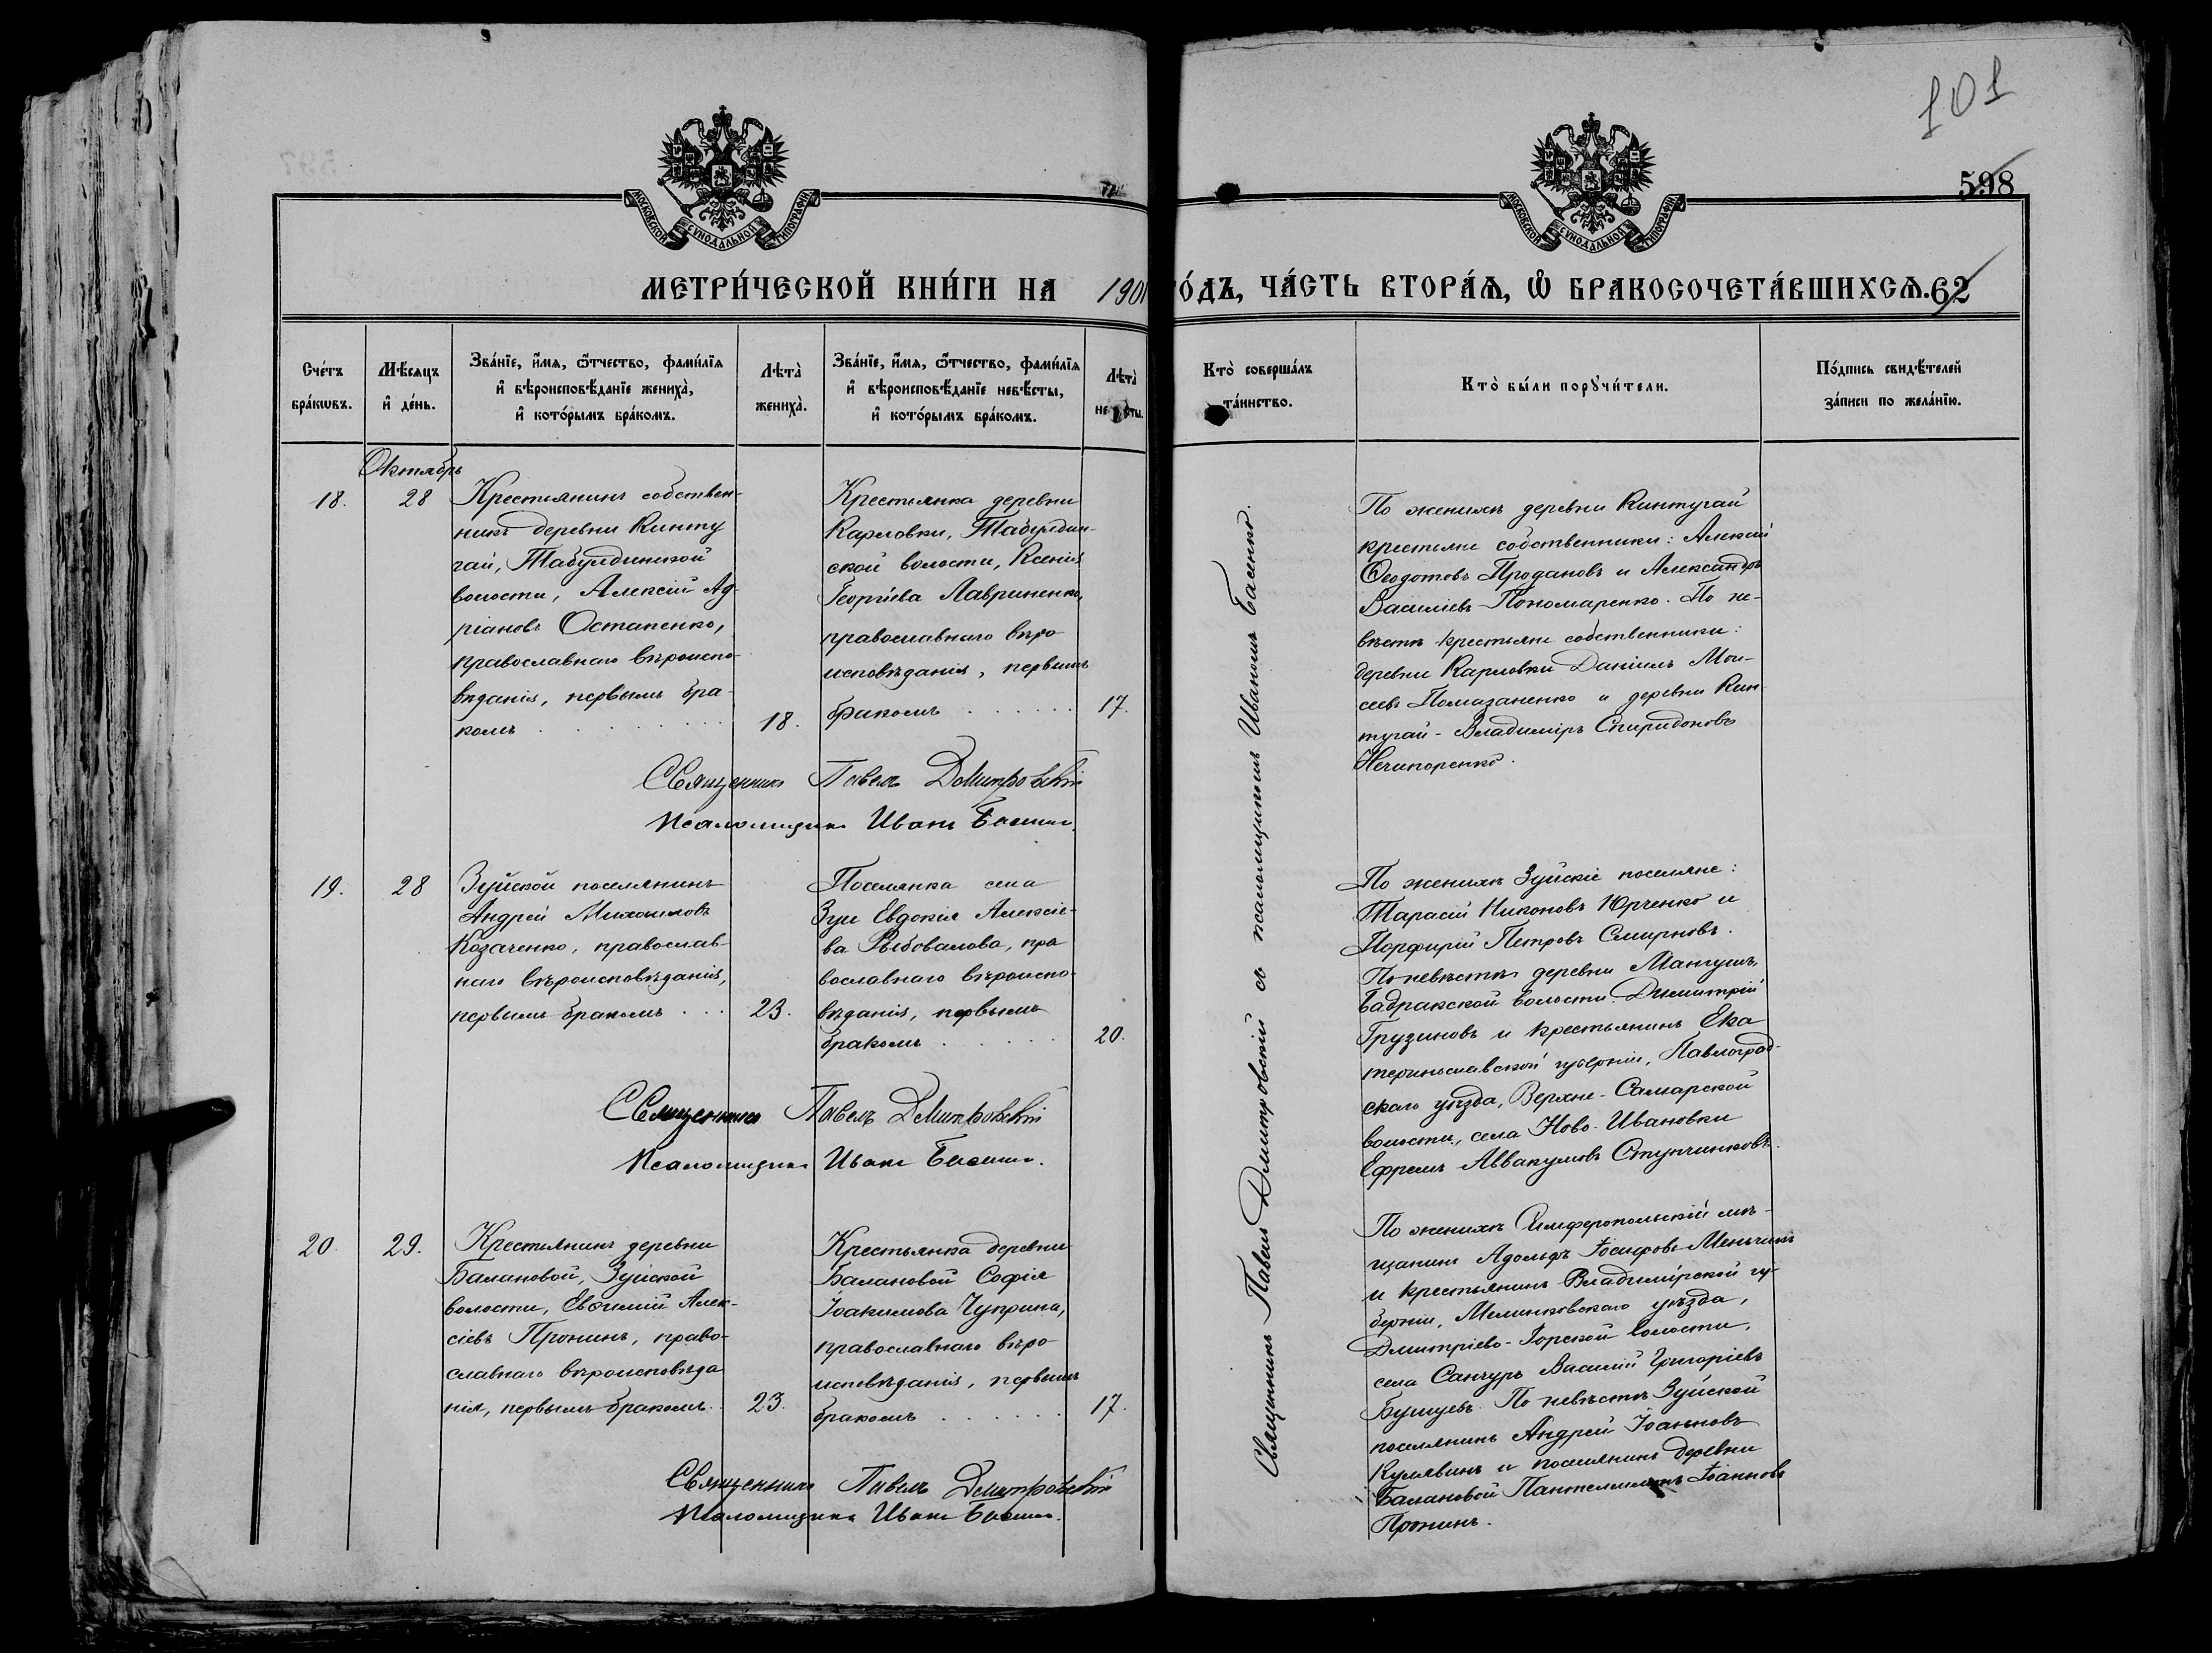 101
598
МОСКОВСКОЙ СѴНОДАЛЬНОЙ ТИПОГРАФІИ
МОСКОВСКОЙ СѴНОДАЛЬНОЙ ТИПОГРАФІИ
МЕТРИ́ЧЕСКОЙ КНИ́ГИ НА 1901 ГО́ДЪ, ЧА́СТЬ ВТОРА́Ѧ, Ѽ БРАКОСОЧЕТА́ВШИХСѦ. 62
Сче́тъ бра́кѡвъ.
Мѣ́сяцъ и҆ де́нь.
Зва́нїе, и҆́мѧ, ѻ҆́тчество, фами́лїѧ
и҆ вѣроисповѣ́данїе жениха̀,
и҆ кото́рымъ бра́комъ.
Лѣта̀ жениха̀.
Зва́нїе, и҆́мѧ, ѻ҆́тчество, фами́лїѧ
и҆ вѣроисповѣ́данїе невѣ́сты,
и҆ кото́рымъ бра́комъ.
Лѣта̀
Кто̀ соверша́лъ та́инство.
Кто̀ бы́ли порꙋчи́тели.
По́дпись свидѣ́телей
за́писи по жела́нїю.
Октябрь
18.
28
Крестьянинъ собствен-
никъ деревни Кинту
гай, Табулдинской
волости, Алексій Ад-
ріановъ Остапенко,
православнаго вѣроиспо-
вѣданія, первымъ бра-
комъ
18.
Крестьянка деревни
Карловки, Табулдин-
ской волости, Ксенія
Георгіева Лавриненко,
православнаго вѣро
исповѣданія, первымъ
бракомъ
17.
По женихѣ деревни Кинтугай
крестьяне собственники: Алексій
Ѳеодотовъ Продановъ и Александръ
Василіевъ Пономаренко. По не-
вѣстѣ крестьяне собственники:
деревни Карловки Даніилъ Мои-
сеевъ Помазаненко и деревни Кин-
тугай - Владиміръ Спиридоновъ
Нечипоренко.
Священникъ Павелъ Дмитровскій
Псаломщикъ Иванъ Басенко.
19.
28
Зуйской поселянинъ
Андрей Михаиловъ
Козаченко, православ-
наго вѣроисповѣданія,
первымъ бракомъ
23.
Поселянка села
Зуи Евдокія Алексіе-
ва Рыбовалова, пра
вославнаго вѣроиспо-
вѣданія, первымъ
бракомъ
20.
По женихѣ Зуйскіе поселяне:
Тарасій Никоновъ Юрченко и
Порфирій Петровъ Смирновъ.
По невѣстѣ деревни Мангушъ,
Бадракской волости Димитрій
Грузиновъ и крестьянинъ Ека
теринославской губерніи, Павлоград-
скаго уѣзда, Верхне-Самарской
волости, села Ново-Ивановки
Ефремъ Аввакумовъ Ступчинковъ.
Священникъ Павелъ Дмитровскій
Псаломщикъ Иванъ Басенко.
20.
29.
Крестьянинъ деревни
Балановой, Зуйской
волости, Евѳимій Алек-
сіевъ Пронинъ, право-
славнаго вѣроисповѣда
нія, первымъ бракомъ.
23.
Крестьянка деревни
Балановой Софія
Іоакимова Чуприна,
православнаго вѣро
исповѣданія, первымъ
бракомъ
17.
По женихѣ Симферопольскій мѣ-
щанинъ Адольфъ Іосифовъ
и крестьянинъ Владимірской гу-
берніи, Меленковскаго уѣзда,
Дмитріево-Горской волости,
села Санчуръ Василій Григоріевъ
Бушуевъ. По невѣстѣ Зуйской
поселянинъ Андрей Іоанновъ
Кулявинъ и поселянинъ деревни
Балановой Пантелеимонъ Іоанновъ
Пронинъ.
Священникъ Павелъ Дмитровскій
Псаломщикъ Иванъ Басенко.
Священникъ Павелъ Дмитровскій съ псаломщикомъ Иваномъ Басенко.